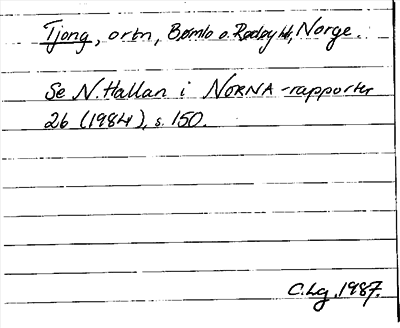 Tjong, ortn, Bømlo o. Rødøy hd, Norge.
Se N. Hallan i NORNA-rapporter
26 (1984), s. 150.
C.Lg. 1987.